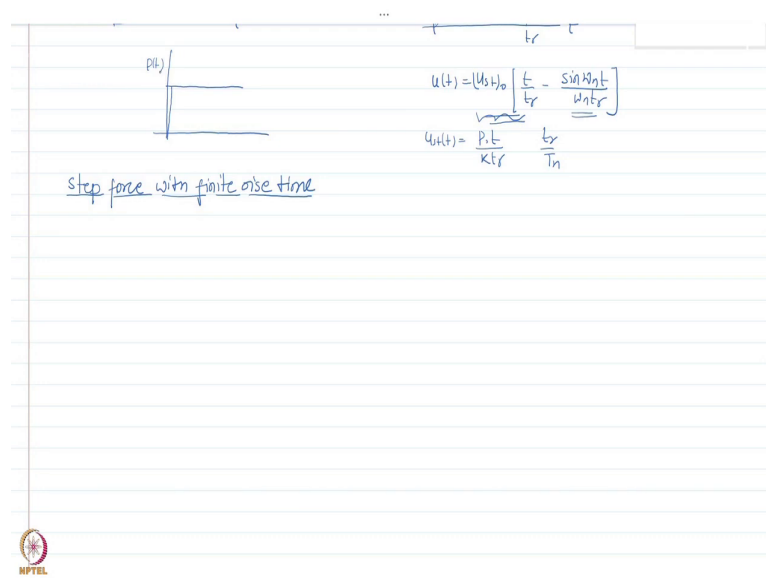 tr t
P(t)
u(t) = (ust)0 [ t/tr - sin ωnt / ωntr ]
ust(t) = P0t / Ktr    tr / Tn
step force with finite rise time
NPTEL